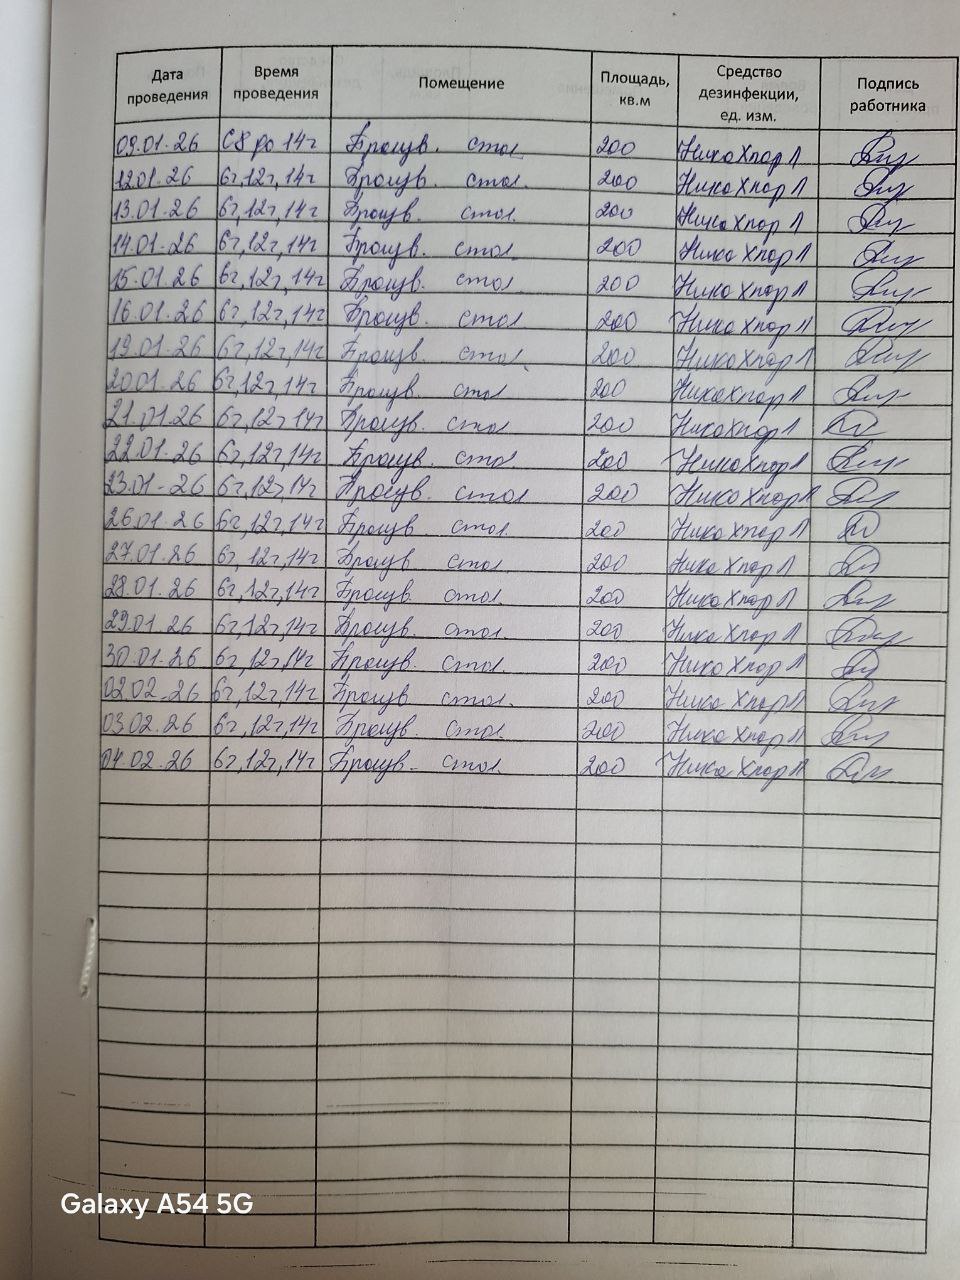 Дата проведения Время проведения Помещение Площадь, кв.м Средство дезинфекции, ед. изм. Подпись работника
09.01.26 С 8 до 14ч стол 200 НикаХлор Л
12.01.26 6ч,12ч,14ч стол. 200 Ника Хлор Л
13.01.26 6ч,12ч,14ч стол. 200 Ника Хлор Л
14.01.26 6ч,12ч,14ч стол. 200 Ника Хлор Л
15.01.26 6ч,12ч,14ч стол 200 Ника Хлор Л
16.01.26 6ч,12ч,14ч стол 200 Ника Хлор Л
19.01.26 6ч,12ч,14ч стол. 200 НикаХлор Л
20.01.26 6ч,12ч,14ч стол 200 НикаХлор Л
21.01.26 6ч,12ч,14ч стол 200 НикаХлор Л
22.01.26 6ч,12ч,14ч стол 200 НикаХлор Л
23.01.26 6ч,12ч,14ч стол 200 НикаХлор Л
26.01.26 6ч,12ч,14ч стол. 200 Ника Хлор Л
27.01.26 6ч,12ч,14ч стол. 200 Ника Хлор Л
28.01.26 6ч,12ч,14ч стол. 200 Ника Хлор Л
29.01.26 6ч,12ч,14ч стол. 200 Ника Хлор Л
30.01.26 6ч,12ч,14ч стол. 200 Ника Хлор Л
02.02.26 6ч,12ч,14ч стол. 200 Ника Хлор Л
03.02.26 6ч,12ч,14ч стол 200 Ника Хлор Л
04.02.26 6ч,12ч,14ч стол. 200 Ника Хлор Л
Galaxy A54 5G